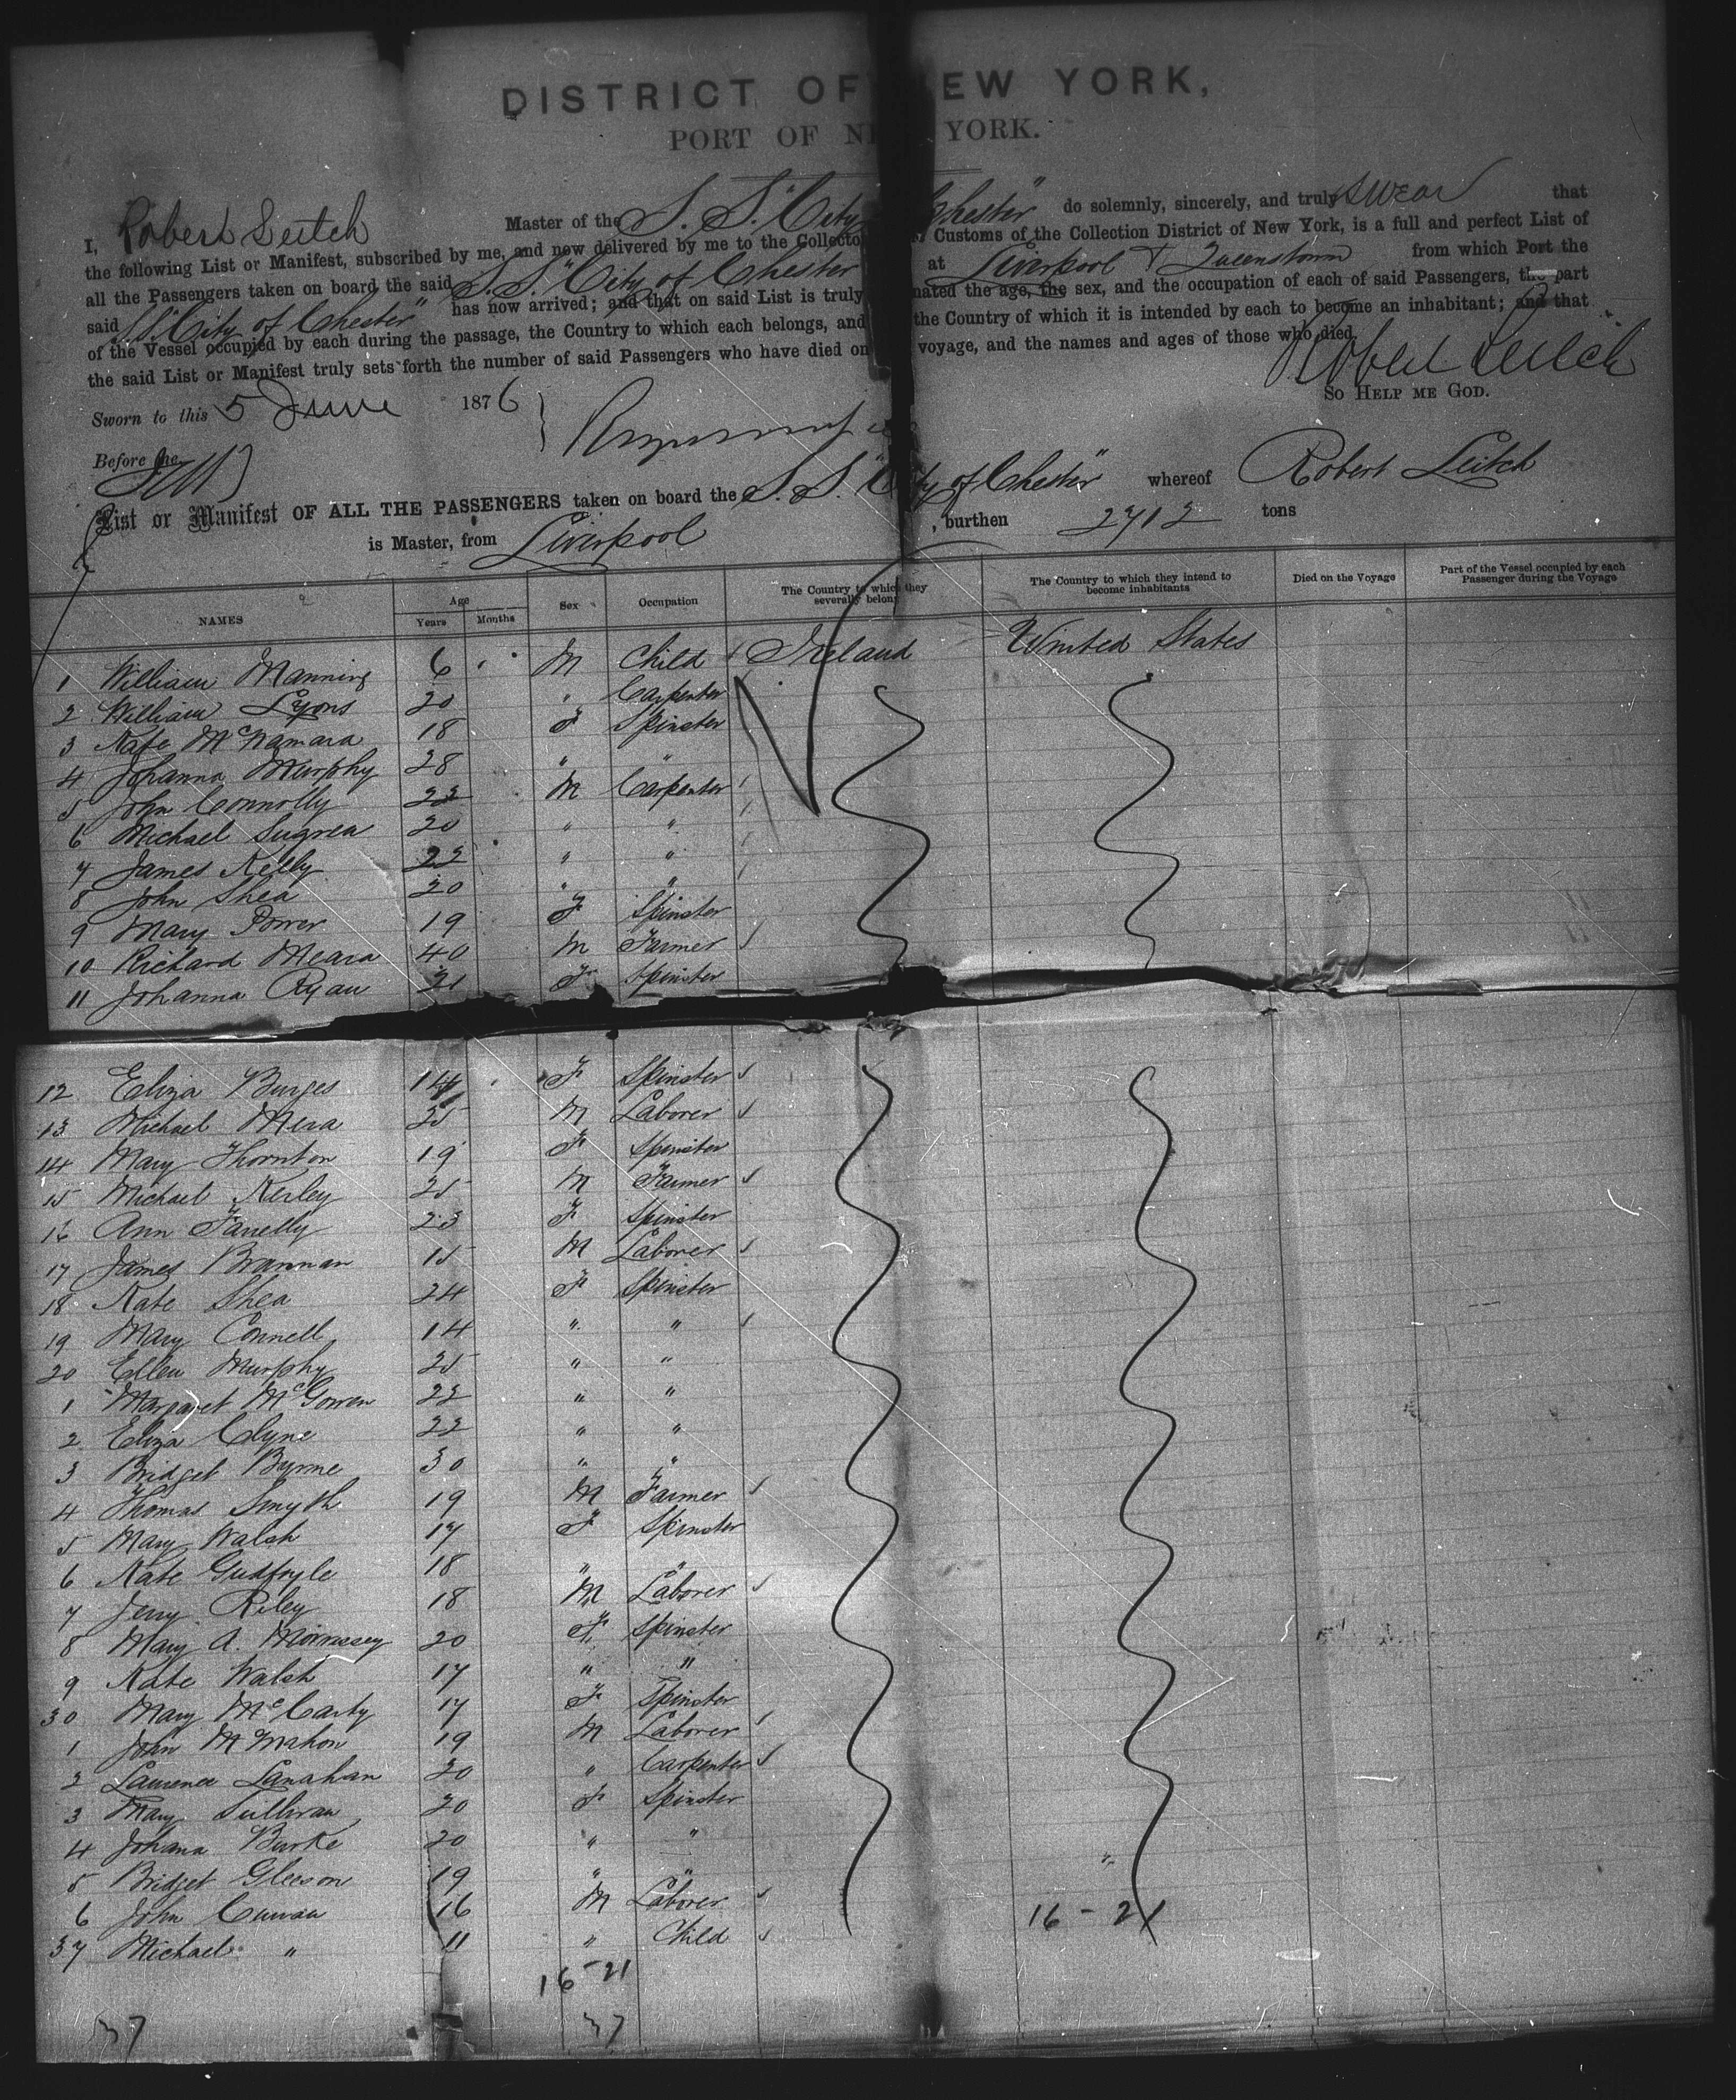 DISTRICT OF EW YORK,
PORT OF N YORK.
I, Robert Leitch Master of the S. S. "City Chester" do solemnly, sincerely, and truly swear that
the following List or Manifest, subscribed by me, and now delivered by me to the Collecto Customs of the Collection District of New York, is a full and perfect List of
all the Passengers taken on board the said S. S. "City of Chester at Liverpool & Queenstown from which Port the
said S.S. "City of Chester" has now arrived; and that on said List is truly nated the age, the sex, and the occupation of each of said Passengers, the part
of the Vessel occupied by each during the passage, the Country to which each belongs, and the Country of which it is intended by each to become an inhabitant; and that
the said List or Manifest truly sets forth the number of said Passengers who have died on voyage, and the names and ages of those who died.
Robert Leitch
So Help me God.
Sworn to this 5 June 1876
Before me
List or Manifest OF ALL THE PASSENGERS taken on board the S. S. "C ty of Chester" whereof Robert Leitch
is Master, from Liverpool , burthen 2712 tons
NAMES Age Years Months Sex Occupation The Country to which they severally belong The Country to which they intend to become inhabitants Died on the Voyage Part of the Vessel occupied by each Passenger during the Voyage
1 William Manning 6 M Child Ireland United States
2 William Lyons 20 " Carpenter
3 Kate McNamara 18 F Spinster
4 Johanna Murphy 28 " "
5 John Connolly 22 M Carpenter
6 Michael Sugrea 20 " "
7 James Kelly 22 " "
8 John Shea 20 " "
9 Mary Power 19 F Spinster
10 Richard Meara 40 M Farmer
11 Johanna Ryan 21 F Spinster
12 Eliza Burges 14 F Spinster
13 Michael Mera 25 M Laborer
14 Mary Thornton 19 F Spinster
15 Michael Kerley 25 M Farmer
16 Ann Fanelly 23 F Spinster
17 James Brannan 15 M Laborer
18 Kate Shea 24 F Spinster
19 Mary Connell 14 " "
20 Ellen Murphy 25 " "
1 Margaret McGowen 22 " "
2 Eliza Clyne 22 " "
3 Bridget Byrne 30 " "
4 Thomas Smyth 19 M Farmer
5 Mary Walsh 17 F Spinster
6 Kate Gudfoyle 18 " "
7 Jerry Riley 18 M Laborer
8 Mary A. Morrissey 20 F Spinster
9 Kate Walsh 17 " "
30 Mary McCarty 17 F Spinster
1 John McMahon 19 M Laborer
2 Laurence Lanahan 20 " Carpenter
3 Mary Sullivan 20 F Spinster
4 Johana Burke 20 " "
5 Bridget Gleeson 19 " "
6 John Curran 16 M Laborer 16 - 21
37 Michael " 11 " Child
16 - 21
37 37